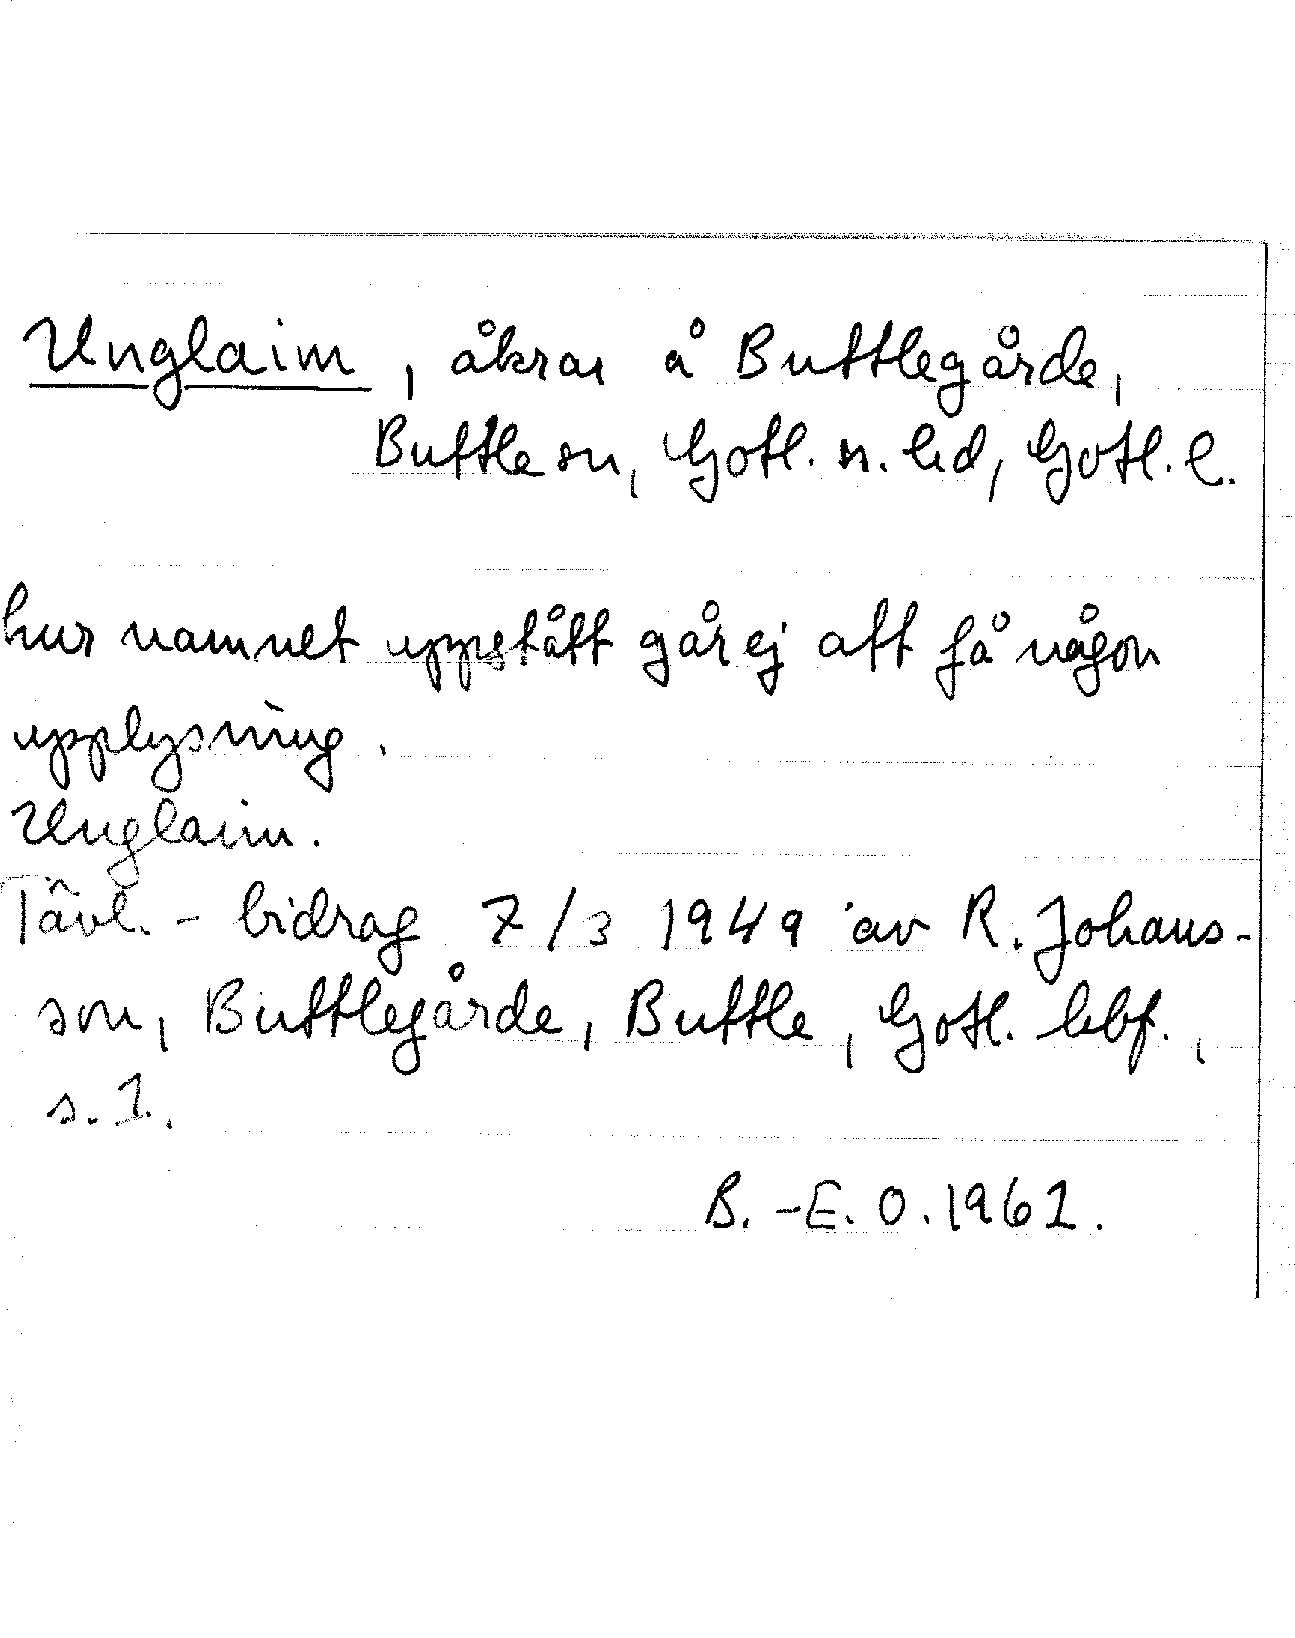 Unglaim, åkrar å Buttlegårde,
Buttle sn, Gotl. n. hd, Gotl. l.
hur namnet uppstått går ej att få någon
upplysning.
Unglaim.
Tävl. - bidrag 7/3 1949 av R. Johans-
son, Buttlegårde, Buttle, Gotl. lbf.,
s. 1.
B. -E. O. 1961.